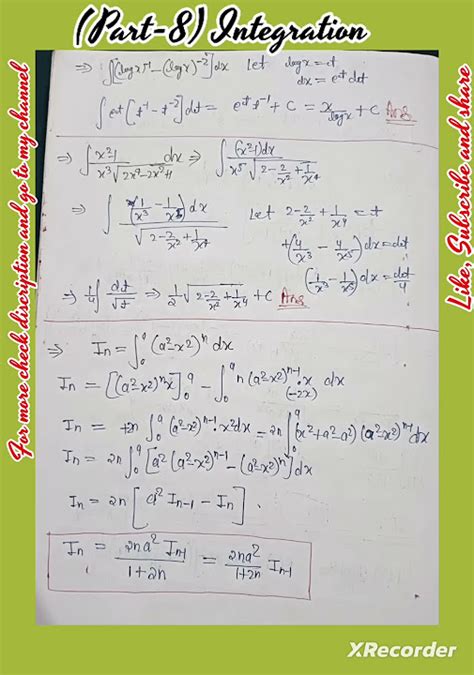 (Part-8) Integration
For more check discription and go to my channel
Like, Subscibe and share
⇒ ∫[(log x)⁻¹ - (log x)⁻²]dx Let log x = t
dx = e^t dt
∫ e^t [t⁻¹ - t⁻²]dt = e^t t⁻¹ + C = x/log x + C Ans
⇒ ∫ (x²-1)/(x³√(2x⁴-2x²+1)) dx ⇒ ∫ (x²-1)dx/(x⁵√(2-2/x²+1/x⁴))
⇒ ∫ (1/x³ - 1/x⁵)dx/√(2-2/x²+1/x⁴) Let 2-2/x²+1/x⁴ = t
+(4/x³ - 4/x⁵)dx = dt
⇒ 1/4 ∫ dt/√t ⇒ 1/2 √(2-2/x²+1/x⁴) + C Ans (1/x³ - 1/x⁵)dx = dt/4
⇒ Iₙ = ∫₀ᵃ (a²-x²)ⁿ dx
Iₙ = [(a²-x²)ⁿ x]₀ᵃ - ∫₀ᵃ n(a²-x²)ⁿ⁻¹ (-2x) x dx
Iₙ = +2n ∫₀ᵃ (a²-x²)ⁿ⁻¹ x²dx = -2n ∫₀ᵃ (x²+a²-a²)(a²-x²)ⁿ⁻¹ dx
Iₙ = 2n ∫₀ᵃ [a²(a²-x²)ⁿ⁻¹ - (a²-x²)ⁿ]dx
Iₙ = 2n [a² Iₙ₋₁ - Iₙ]
Iₙ = 2na² Iₙ₋₁/(1+2n) = 2na²/(1+2n) Iₙ₋₁
XRecorder